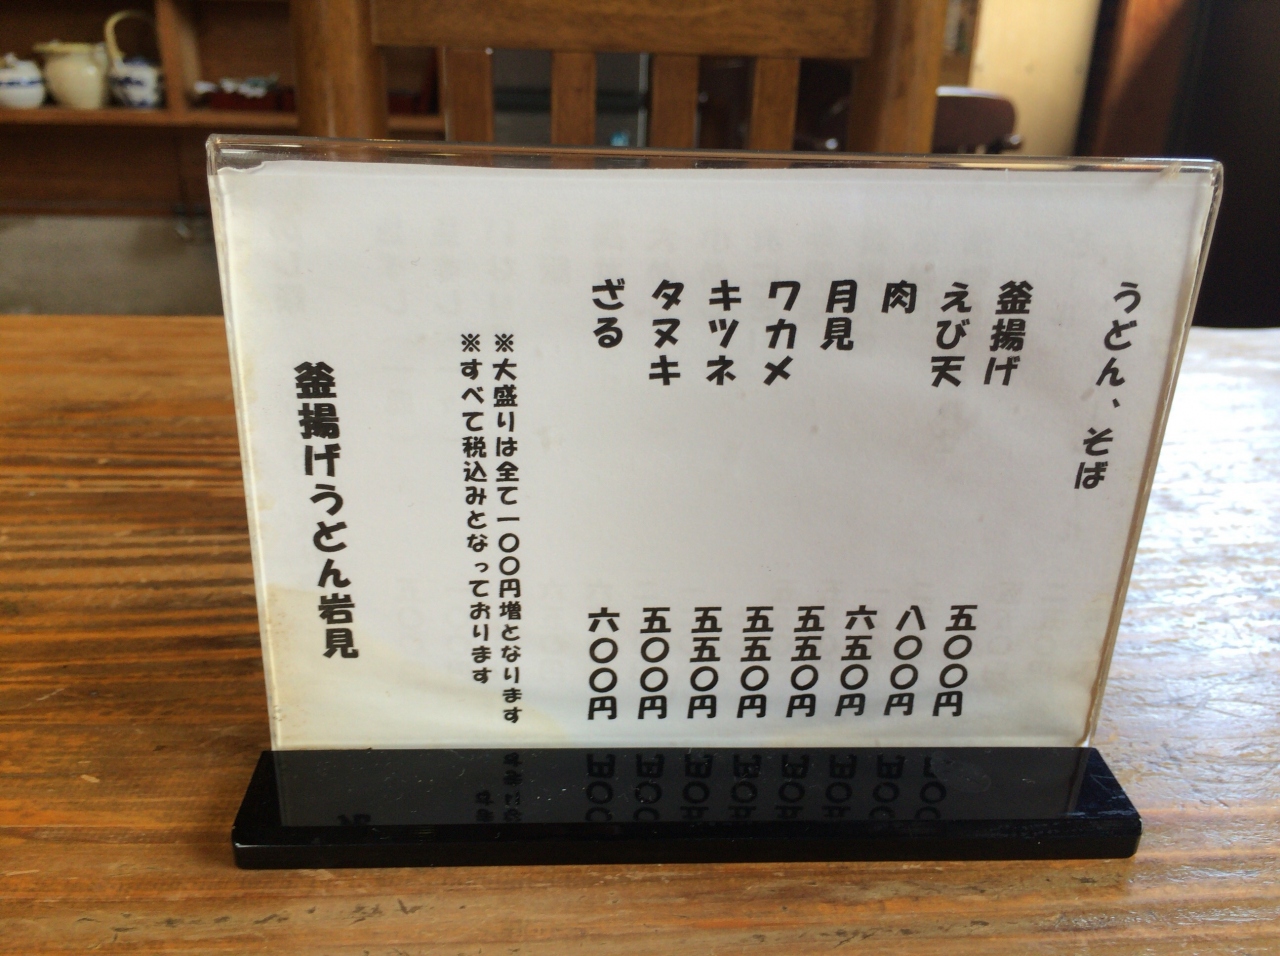 うどん、そば
釜揚げ 五〇〇円
えび天 八〇〇円
肉 六五〇円
月見 五五〇円
ワカメ 五五〇円
キツネ 五五〇円
タヌキ 五〇〇円
ざる 六〇〇円
※大盛りは全て一〇〇円増となります
※すべて税込みとなっております
釜揚げうどん岩見